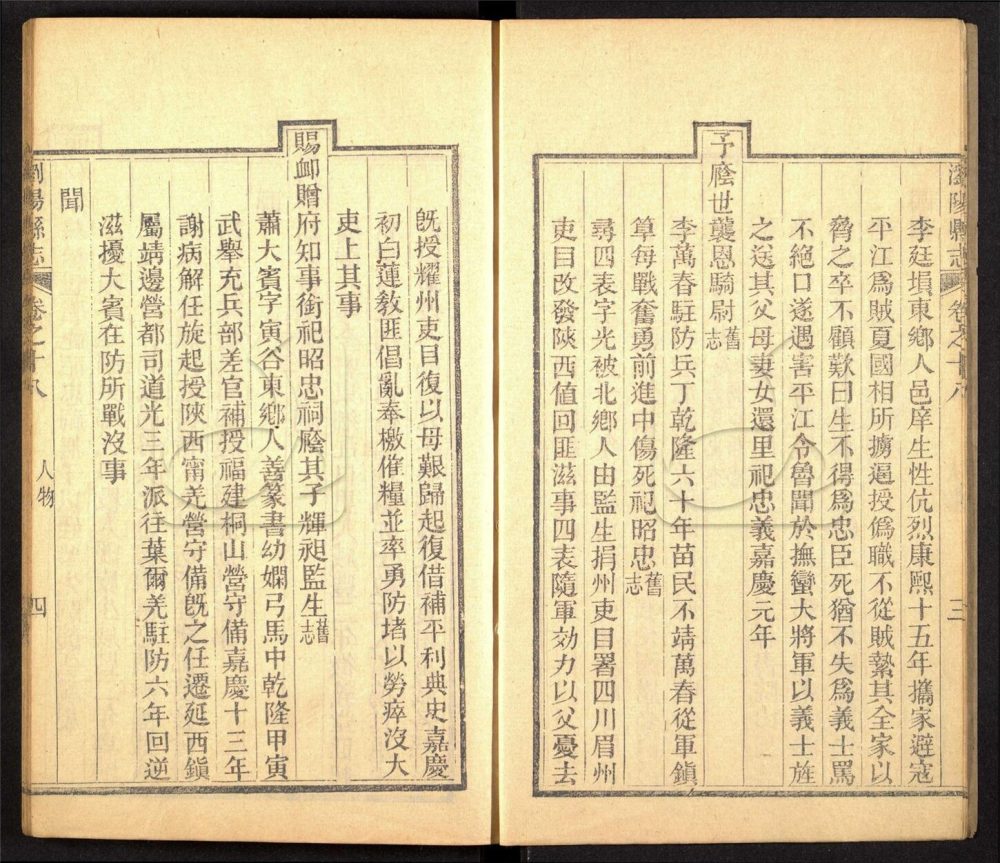 瀏陽縣志 卷之十八 三
李廷塤東鄉人邑庠生性伉烈康熙十五年攜家避寇
平江爲賊夏國相所擄逼授僞職不從賊縶其全家以
脅之卒不顧歎曰生不得爲忠臣死猶不失爲義士罵
不絕口遂遇害平江令魯聞於撫蠻大將軍以義士旌
之送其父母妻女還里祀忠義嘉慶元年
予廕世襲恩騎尉舊志
李萬春駐防兵丁乾隆六十年苗民不靖萬春從軍鎮
筸每戰奮勇前進中傷死祀昭忠舊志
尋四表字光被北鄉人由監生捐州吏目署四川眉州
吏目改發陝西值回匪滋事四表隨軍効力以父憂去
旣授耀州吏目復以母艱歸起復借補平利典史嘉慶
初白蓮敎匪倡亂奉檄催糧並率勇防堵以勞瘁沒大
吏上其事
賜卹贈府知事銜祀昭忠祠廕其子輝昶監生舊志
蕭大賓字寅谷東鄉人善篆書幼嫻弓馬中乾隆甲寅
武舉充兵部差官補授福建桐山營守備嘉慶十三年
謝病解任旋起授陝西甯羌營守備旣之任遷延西鎮
屬靖邊營都司道光三年派往葉爾羌駐防六年回逆
滋擾大賓在防所戰沒事
聞
瀏陽縣志 卷之十八 人物 四